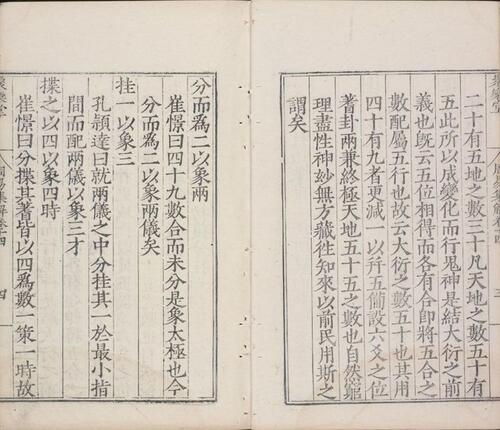 二十有五地之數三十凡天地之數
五此所以成變化而行鬼神是結大衍之前
義也旣云五位相得而各有合即將五合之
數配屬五行也故云大衍之數五十也其用
四十有九者更減一以幷五備設六爻之位
蓍卦兩兼終極天地五十五之數也自然窮
理盡性神妙無方藏徃知來以前民用斯之
謂矣
分而爲二以象兩
崔憬曰四十九數合而未分是象太極也今
分而爲二以象兩儀矣
挂一以象三
孔頴達曰就兩儀之中分挂其一於最小指
間而配兩儀以象三才
揲之以四以象四時
崔憬曰分揲其蓍皆以四爲數一策一時故
四